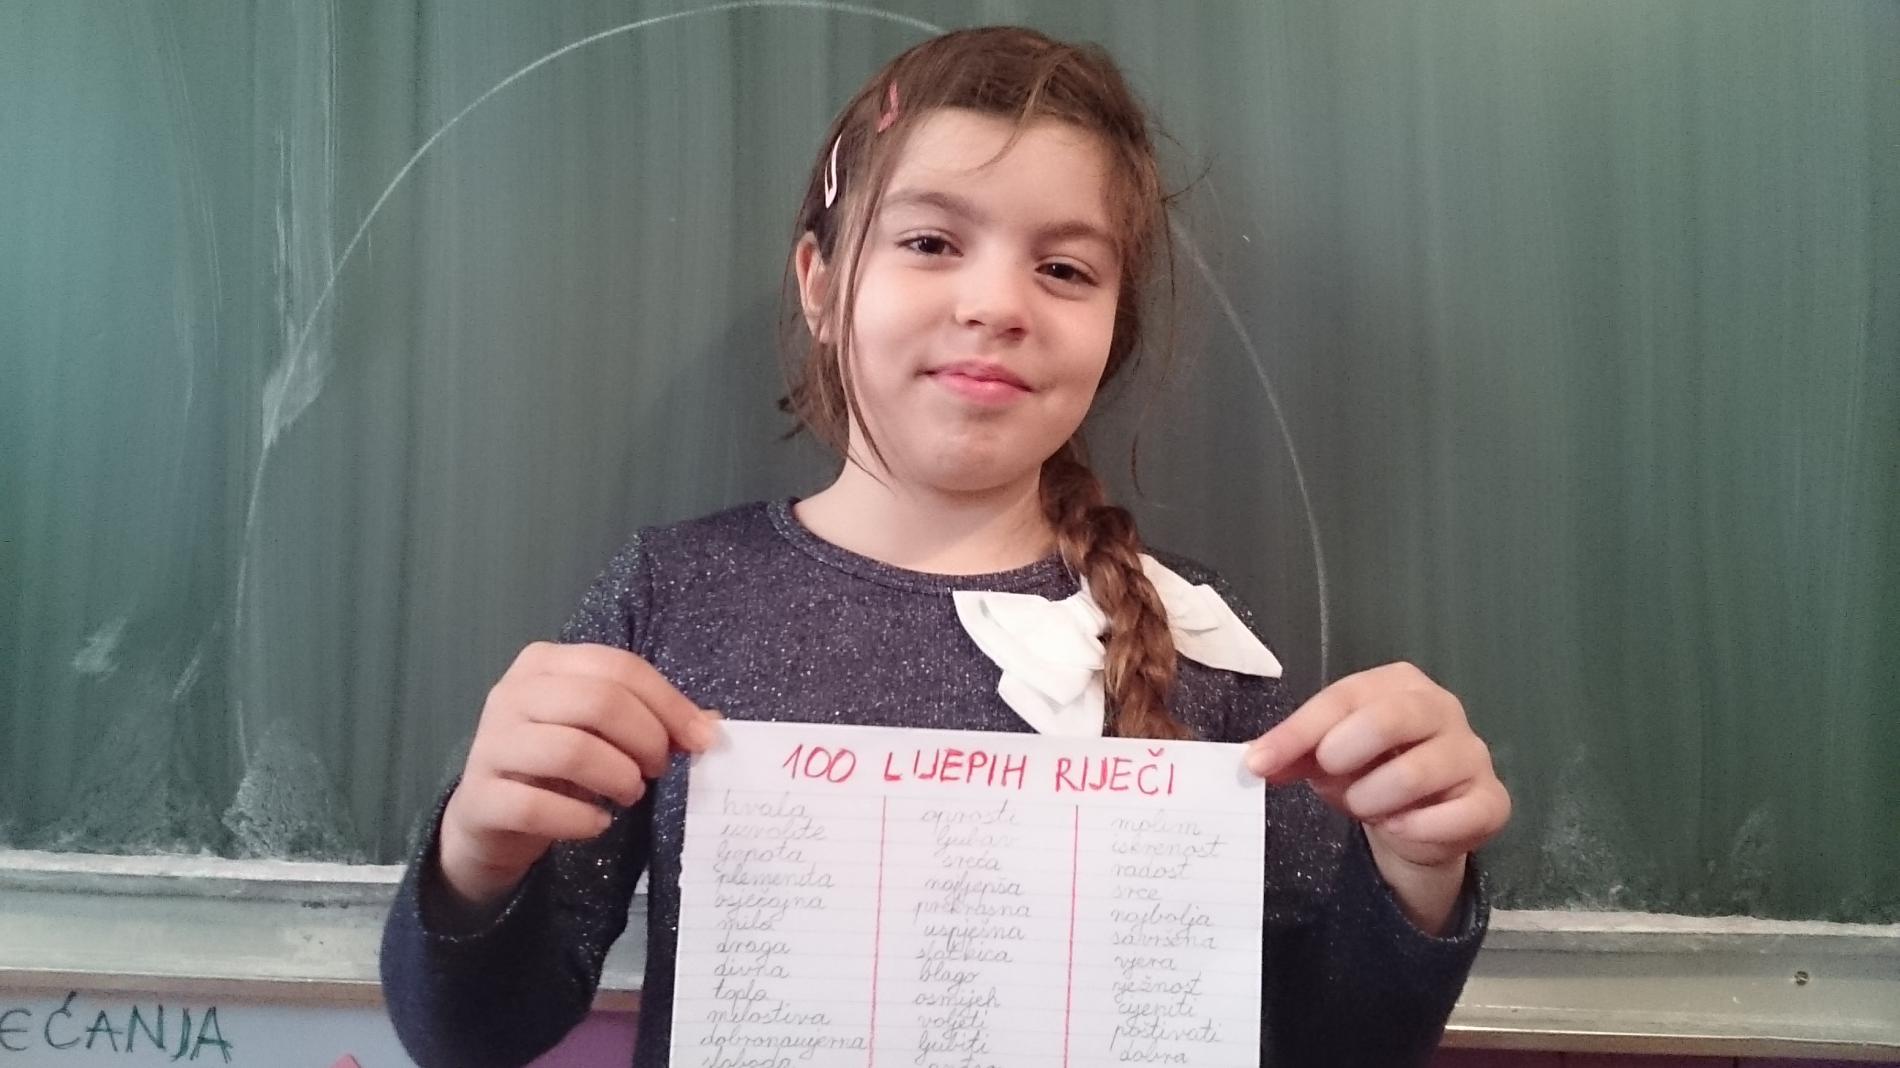 100 LIJEPIH RIJEČI
hvala
izvolite
ljepota
plemenita
osjećajna
mila
draga
divna
topla
milostiva
dobronamjerna
sloboda
oprosti
ljubav
sreća
najljepša
prekrasna
uspješna
slatkica
blago
osmijeh
voljeti
ljubiti
molim
iskrenost
radost
srce
najbolja
savršena
vjera
nježnost
cijeniti
poštivati
dobra
EĆANJA